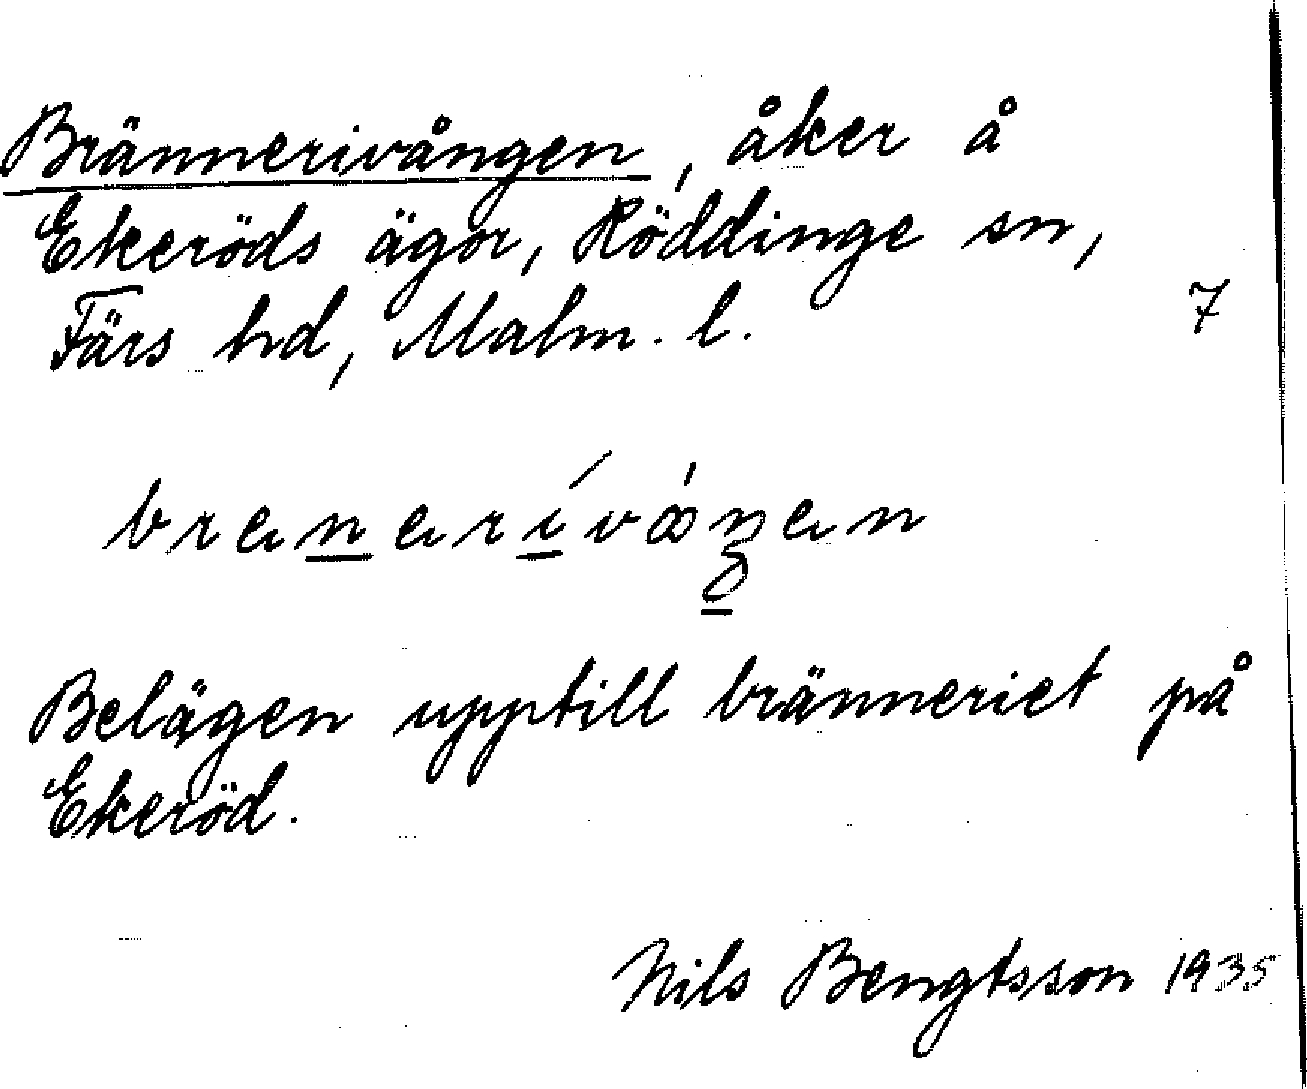 Brännerivången, åker å
Ekeröds ägor, Röddinge sn,
Färs hd, Malm. l.
7
Belägen upptill bränneriet på
Ekeröd.
Nils Bengtsson 1935